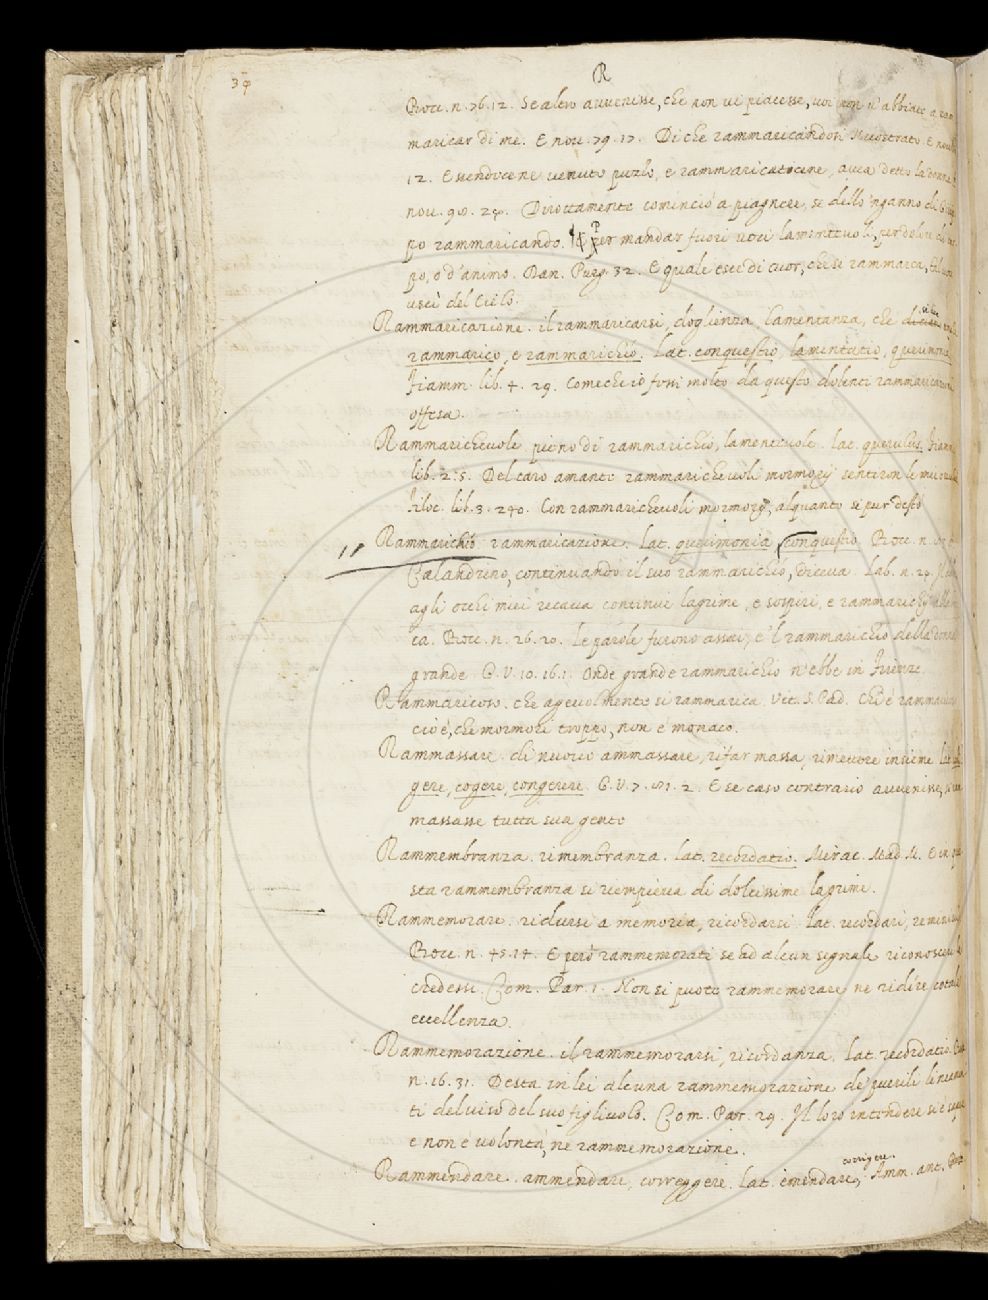 34
R
Bocc. n. 76. 12. Se altro avvenisse, che non vi piacesse, voi non v'abbiate a ram
maricar di me. E nov. 79. 17. Di che rammaricandosi E nov.
12. Essendocene venuto puzlo, e rammaricatocene, avea detto la donna
nov. 98. 24. Dirottamente cominciò a piagnere, se dello 'nganno di
po rammaricando. Per mandar fuori voci lamentevoli, per dolore di cor
po, o d'animo. Dan. Purg. 32. E quale esce di cuor, che si rammarca, tal voce
uscì del Cielo.
Rammaricazione. il rammaricarsi, doglienza, lamentanza, che si dice
rammarico, e rammarichìo. Lat. conquestio, lamentatio, querimonia
Fiamm. lib. 4. 29. Comechè io fossi molto da questo dolenti rammaricazioni
offesa.
Rammarichevole pieno di rammarichìo, lamentevole. Lat. querulus. Fiam.
lib. 2. 5. Del caro amante rammarichevoli mormorij sentiron le mie orecchie
Filoc. lib. 3. 240. Con rammarichevoli mormorij, alquanto si pur destò
Rammarichìo rammaricazione. Lat. querimonia conquestio Bocc. n.
Calandrino, continuando il suo rammarichìo, diceva. Lab. n. 24.
agli occhi miei recava continue lagrime, e sospiri, e rammarichij alla boc
ca. Bocc. n. 26. 20. Le parole furono assai, e 'l rammarichìo della donna
grande. G. V. 10. 16. 1. Onde grande rammarichìo n'ebbe in Firenze.
Rammaricoso. che agevolmente si rammarica. Vit. S. Pad. Chi è rammarico
cioè, che mormori troppo, non è monaco.
Rammassare. di nuovo ammassare, rifar massa, rimettere insieme. Lat. colli
gere, cogere, congerere. G. V. 7. 81. 2. E se caso contrario avvenisse, si ram
massasse tutta sua gente
Rammembranza. rimembranza. Lat. recordatio. Mirac. Mad. M. E in que
sta rammembranza si riempieva di dolcissime lagrime.
Rammemorare. ridursi a memoria, ricordarsi. Lat. recordari, reminisci
Bocc. n. 45. 14. E però rammemorati se ad alcun segnale riconoscer la
credessi. Com. Par. 1. Non si puote rammemorare ne ridire cotale
eccellenza.
Rammemorazione. il rammemorarsi, ricordanza. Lat. recordatio. Bocc.
n. 16. 31. Desta in lei alcuna rammemorazione de' puerili lineamen
ti del viso del suo figliuolo. Com. Par. 29. Il loro intendere si è sempre
e non è volontà, ne rammemorazione.
Rammendare. ammendare, correggere. Lat. emendare, corrigere. Amm. ant.